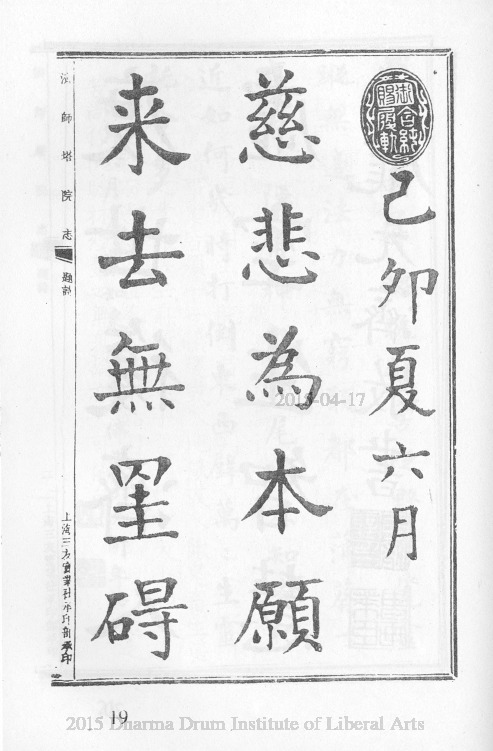 己卯夏六月
慈悲為本願
来去無罣碍
師塔院志
題詞
2015-04-17
19
2015 Dharma Drum Institute of Liberal Arts